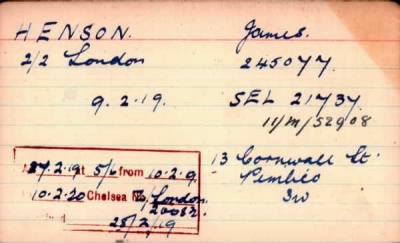 HENSON. James.
2/2 London 245077.
9.2.19. SEL 21737.
11/M/52908
13 Cornwall St.
Pimlico
SW
27.2.19 at 5/6 from 10.2.9
10.2.20 Chelsea No London
20032
25/2/19